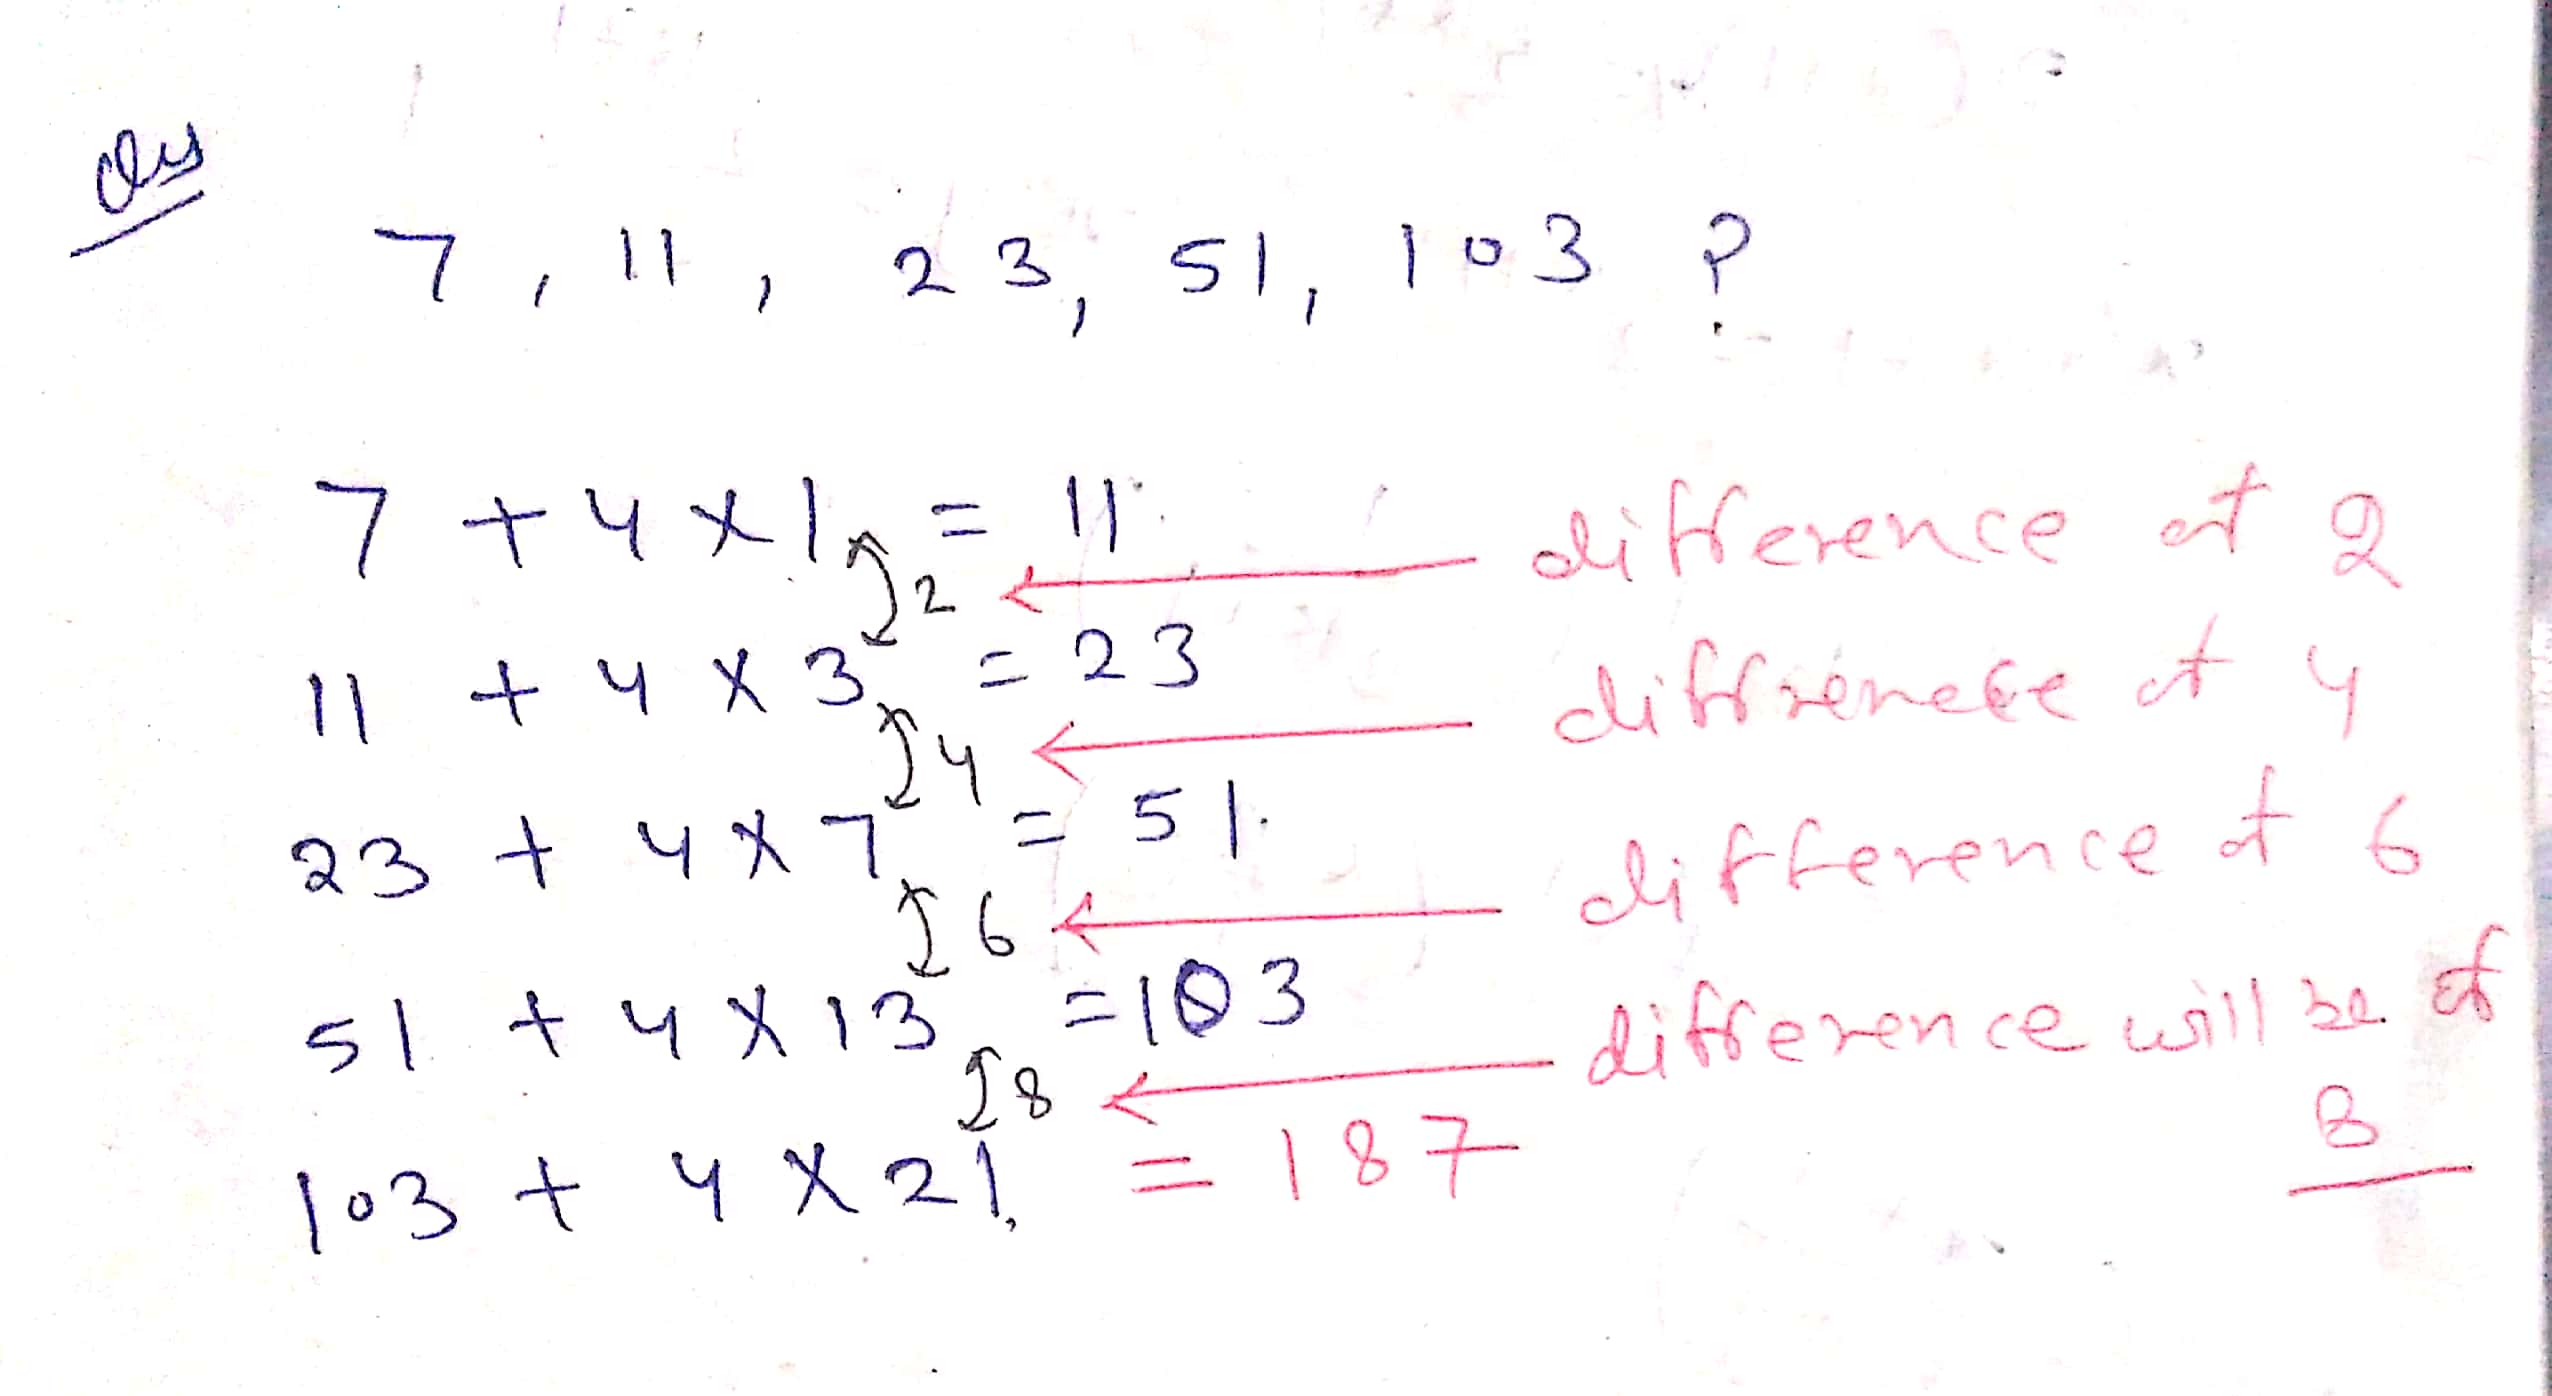 Qus
7, 11, 23, 51, 103 ?
7 + 4 x 1 = 11
2 ← difference of 2
11 + 4 x 3 = 23
4 ← difference of 4
23 + 4 x 7 = 51
6 ← difference of 6
51 + 4 x 13 = 103
8 ← difference will be of 8
103 + 4 x 21 = 187